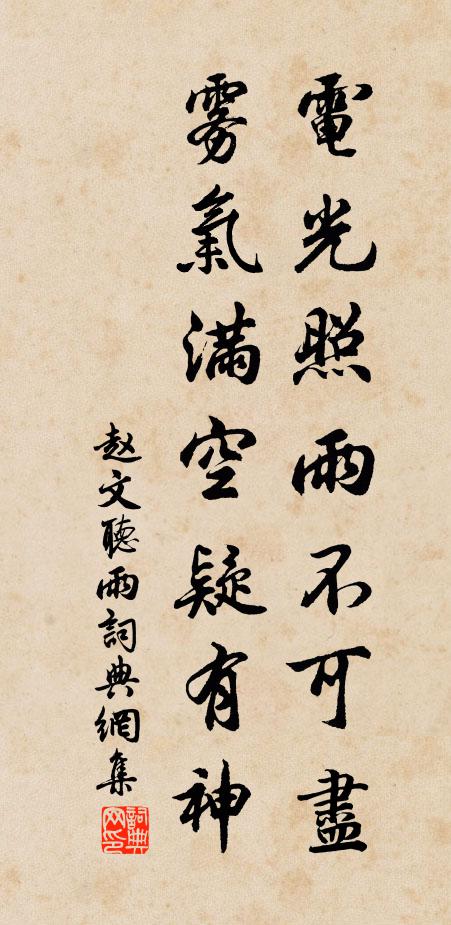 電光照雨不可盡
霧氣滿空疑有神
赵文聽雨詞典網集
詞典網印